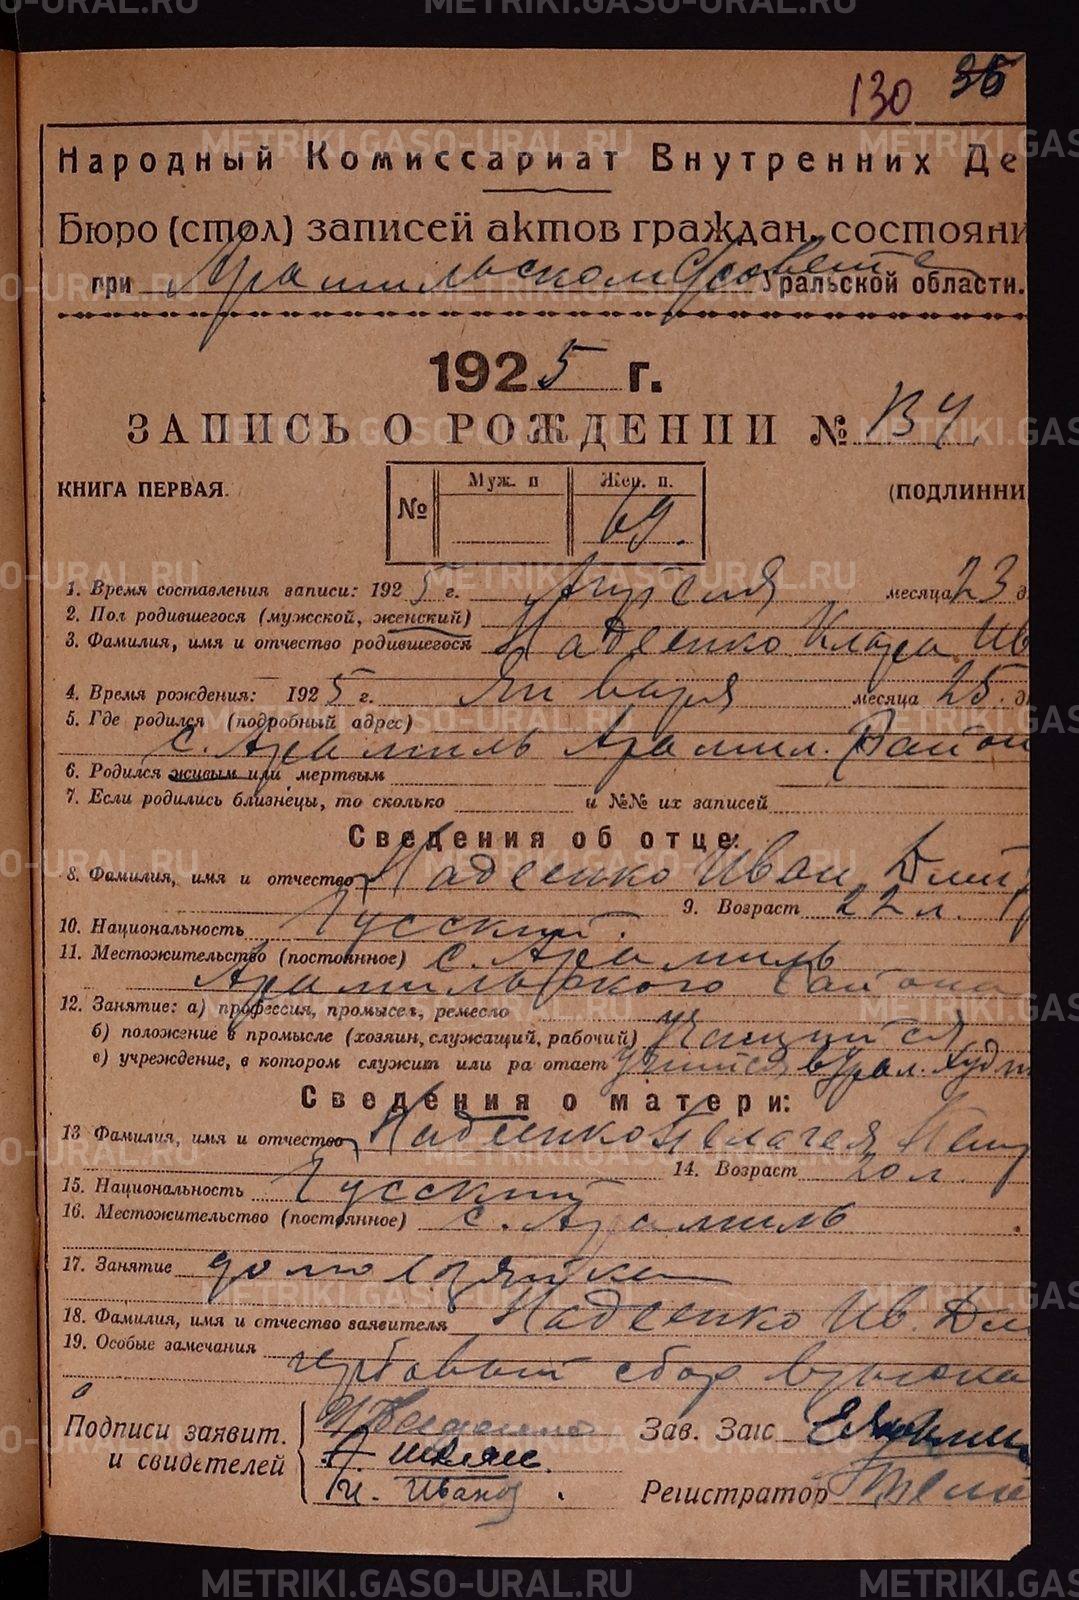 130 36
Народный Комиссариат Внутренних Де
Бюро (стол) записей актов граждан. состояни
при Арамильском Уральской области.
1925 г.
ЗАПИСЬ О РОЖДЕНИИ №
КНИГА ПЕРВАЯ. (ПОДЛИННИ
№ Муж. п Жен. п.
69.
1. Время составления записи: 1925 г. Апреля месяца 23 д
2. Пол родившегося (мужской, женский)
3. Фамилия, имя и отчество родившегося Надеенко Клара Ив
4. Время рождения: 1925 г. Января месяца 25. д
5. Где родился (подробный адрес)
с. Арамиль Арамил. Район
6. Родился живым или мертвым
7. Если родились близнецы, то сколько и №№ их записей
Сведения об отце:
8. Фамилия, имя и отчество Надеенко Иван Дмит
9. Возраст 22 л.
10. Национальность Русский.
11. Местожительство (постоянное) с. Арамиль
Арамильского района
12. Занятие: а) профессия, промысел, ремесло
б) положение в промысле (хозяин, служащий, рабочий) Учащийся
в) учреждение, в котором служит или ра отает учится в Урал. худ
Сведения о матери:
13 Фамилия, имя и отчество Надеенко Пелагея Пет
14. Возраст 20 л.
15. Национальность Русский
16. Местожительство (постоянное) с. Арамиль
17. Занятие домохозяйка
18. Фамилия, имя и отчество заявителя Надеенко Ив. Дм
19. Особые замечания гербовый сбор взыскан
Подписи заявит. Зав. Загс
и свидетелей
И. Иванов Регистратор
METRIKI.GASO-URAL.RU